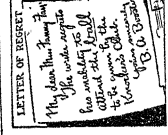 LETTER OF REGRET
My dear Miss Fanny Fair
The wider regrets
his inability to
attend the ball
to be given by the
Knowlin's Club
Yours sincerely
B. A. Booth